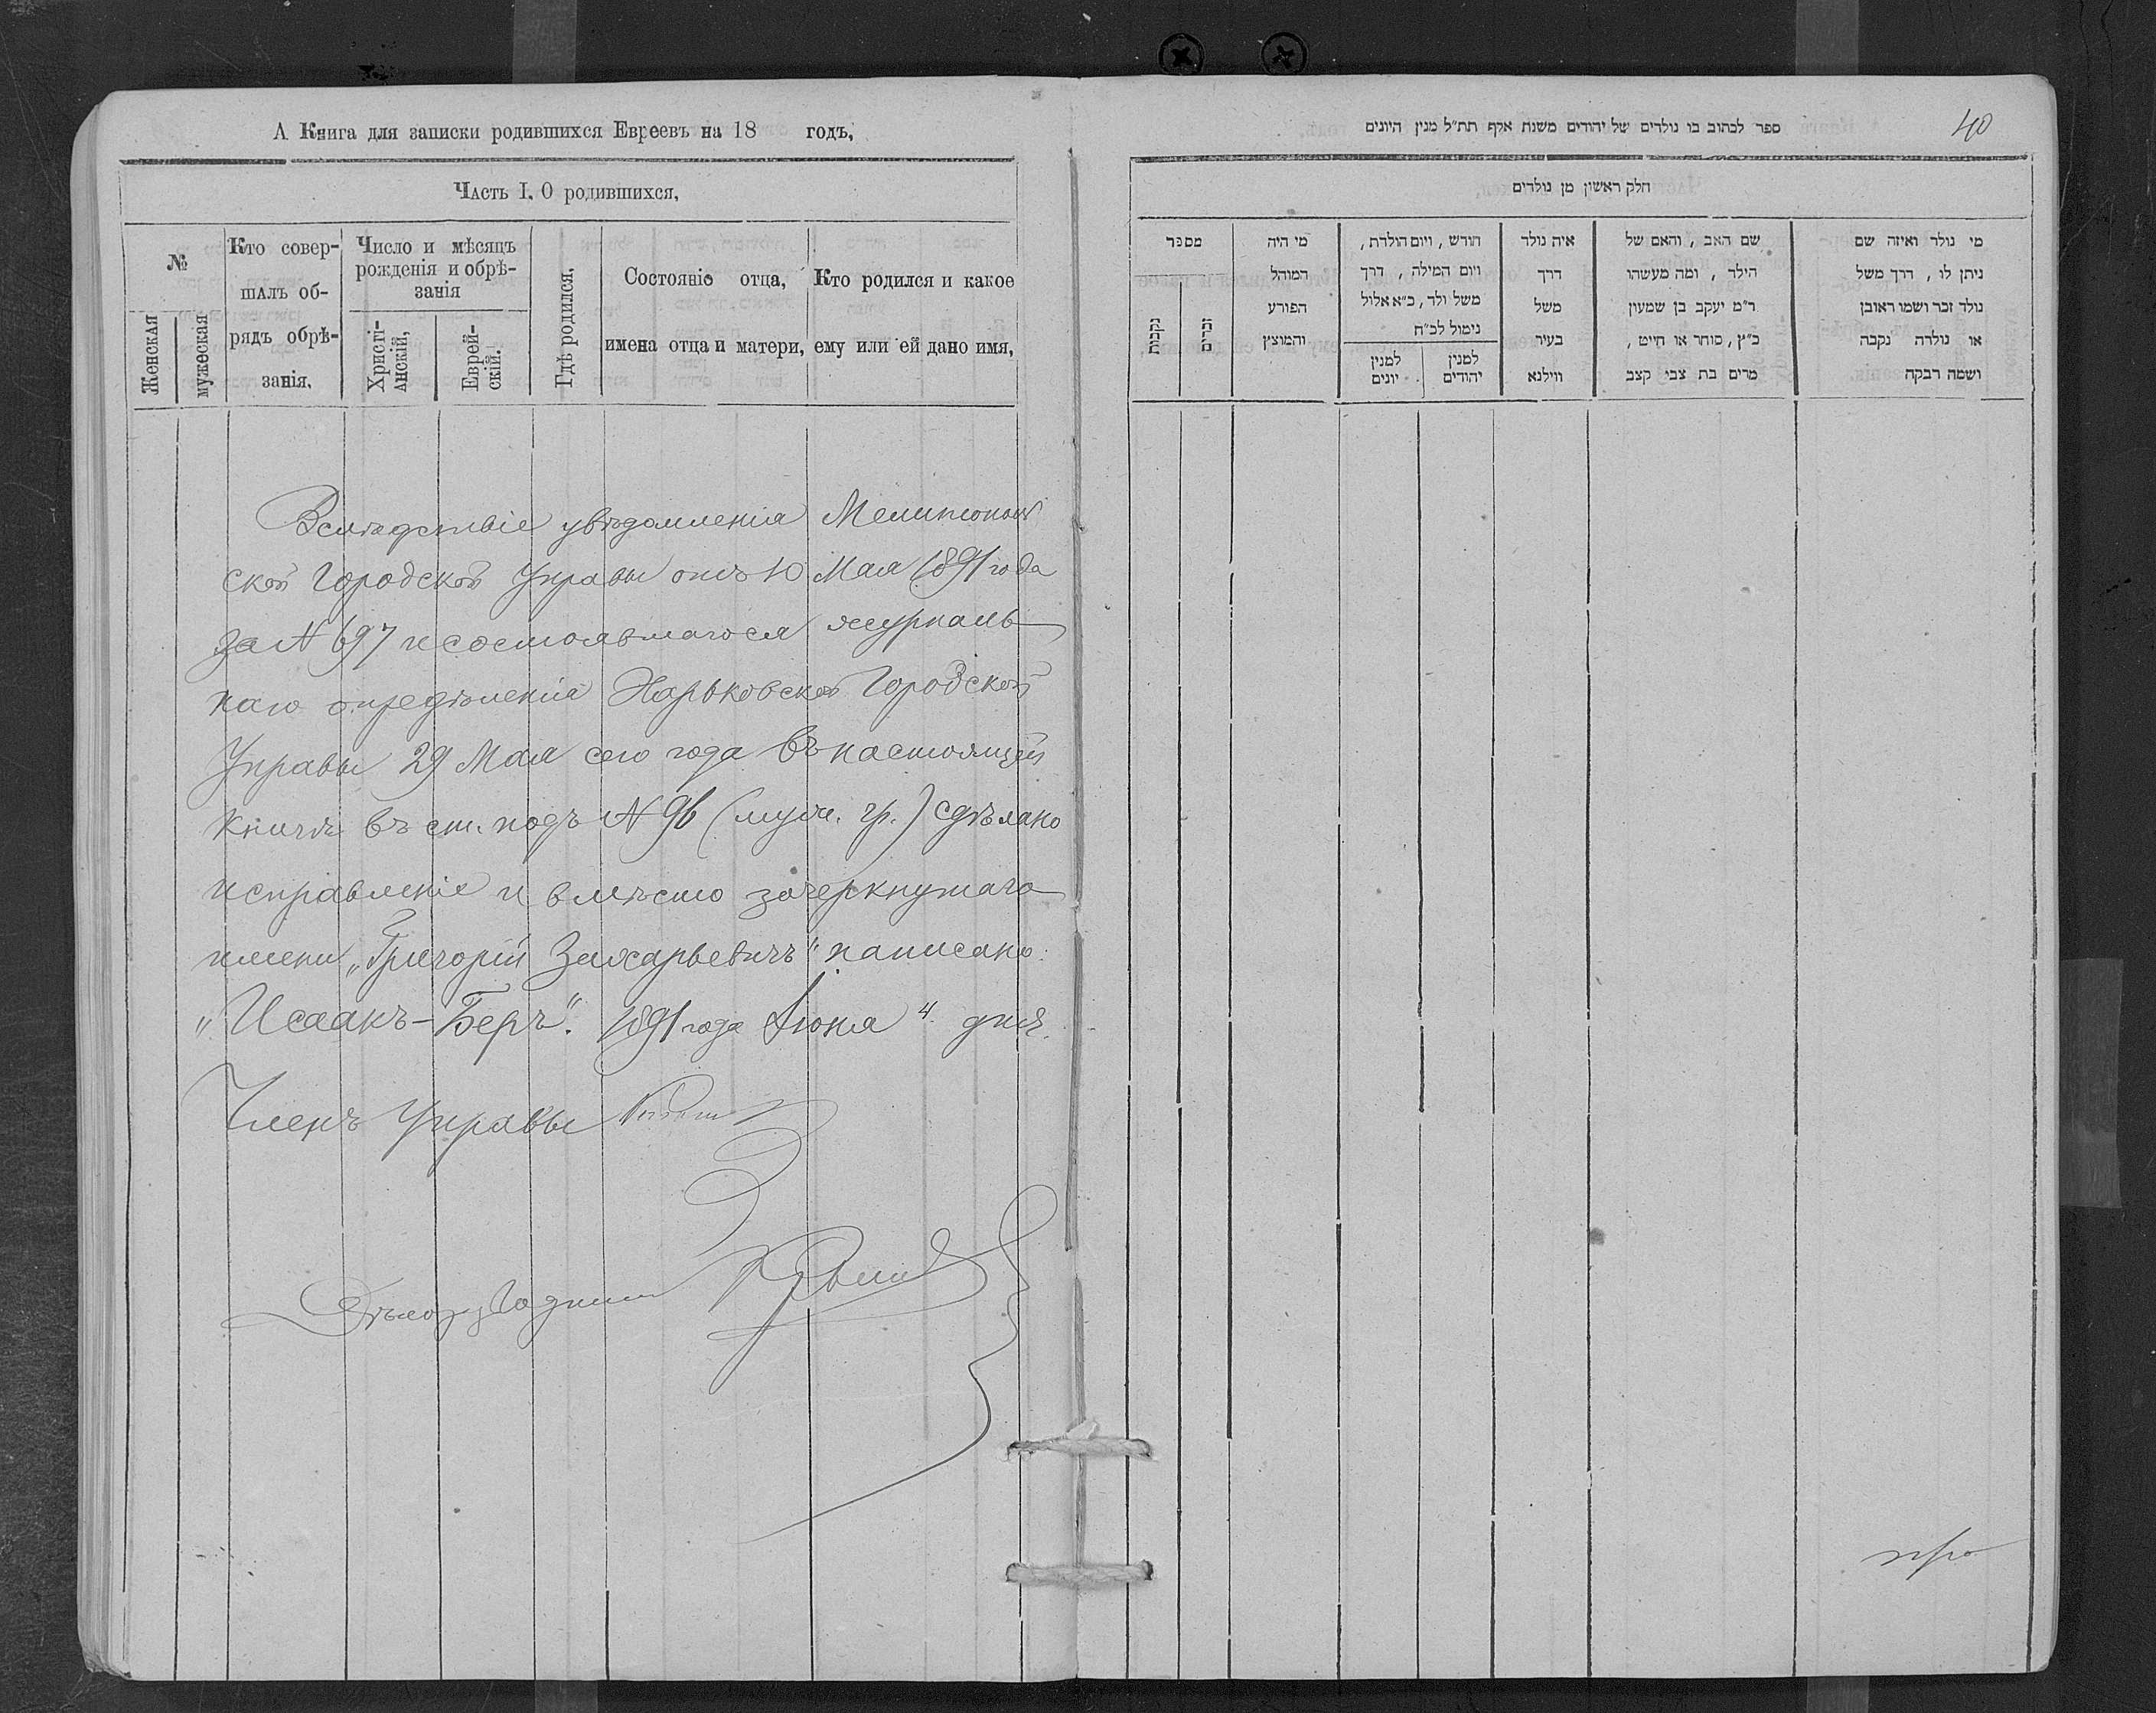 А. Книга для записки родившихся Евреевъ на 18 годъ,
Часть I. О родившихся,
№
Женская
мужеская
Кто совер-
шалъ об-
рядъ обрѣ-
занія.
Число и мѣсяцъ
рожденія и обрѣ-
занія
Христі-
анскій,
Еврей-
скій.
Гдѣ родился,
Состояніе отца,
имена отца и матери,
Кто родился и какое
ему или ей дано имя,
Вслѣдствіе увѣдомленія
ской Городской Управы отъ 10 Мая 1891 года
за № 697 и состоявшагося журналь
наго опредѣленія Харьковской Городской
Управы 29 Мая сего года въ настоящей
книгѣ въ ст. подъ № 96 (муж. гр.) сдѣлано
исправленіе и вмѣсто зачеркнутаго
имени „Григорій Захарьевичъ" написано:
„Исаакъ-Беръ". 1891 года Іюня 4 дня.
Членъ Управы
Дѣлопроизводитель
ספר לכתוב בו נולדים של יהודים משנת אלף תת״ל מנין היונים
40
חלק ראשון מן נולדים
מספר
נקבות
זכרים
מי היה
המוהל
הפורע
והמוצץ
חודש , ויום הולדת ,
ויום המילה , דרך
משל ולד , כ״א אלול
נימול לכ״ח
למנין
יונים
למנין
יהודים
איה נולד
דרך
משל
בעיר
ווילנא
שם האב , והאם של
הילד , ומה מעשהו
ר״מ יעקב בן שמעון
כ״ץ , סוחר או חייט ,
מרים בת צבי קצב
מי נולד ואיזה שם
ניתן לו , דרך משל
נולד זכר ושמו ראובן
או נולדה נקבה
ושמה רבקה